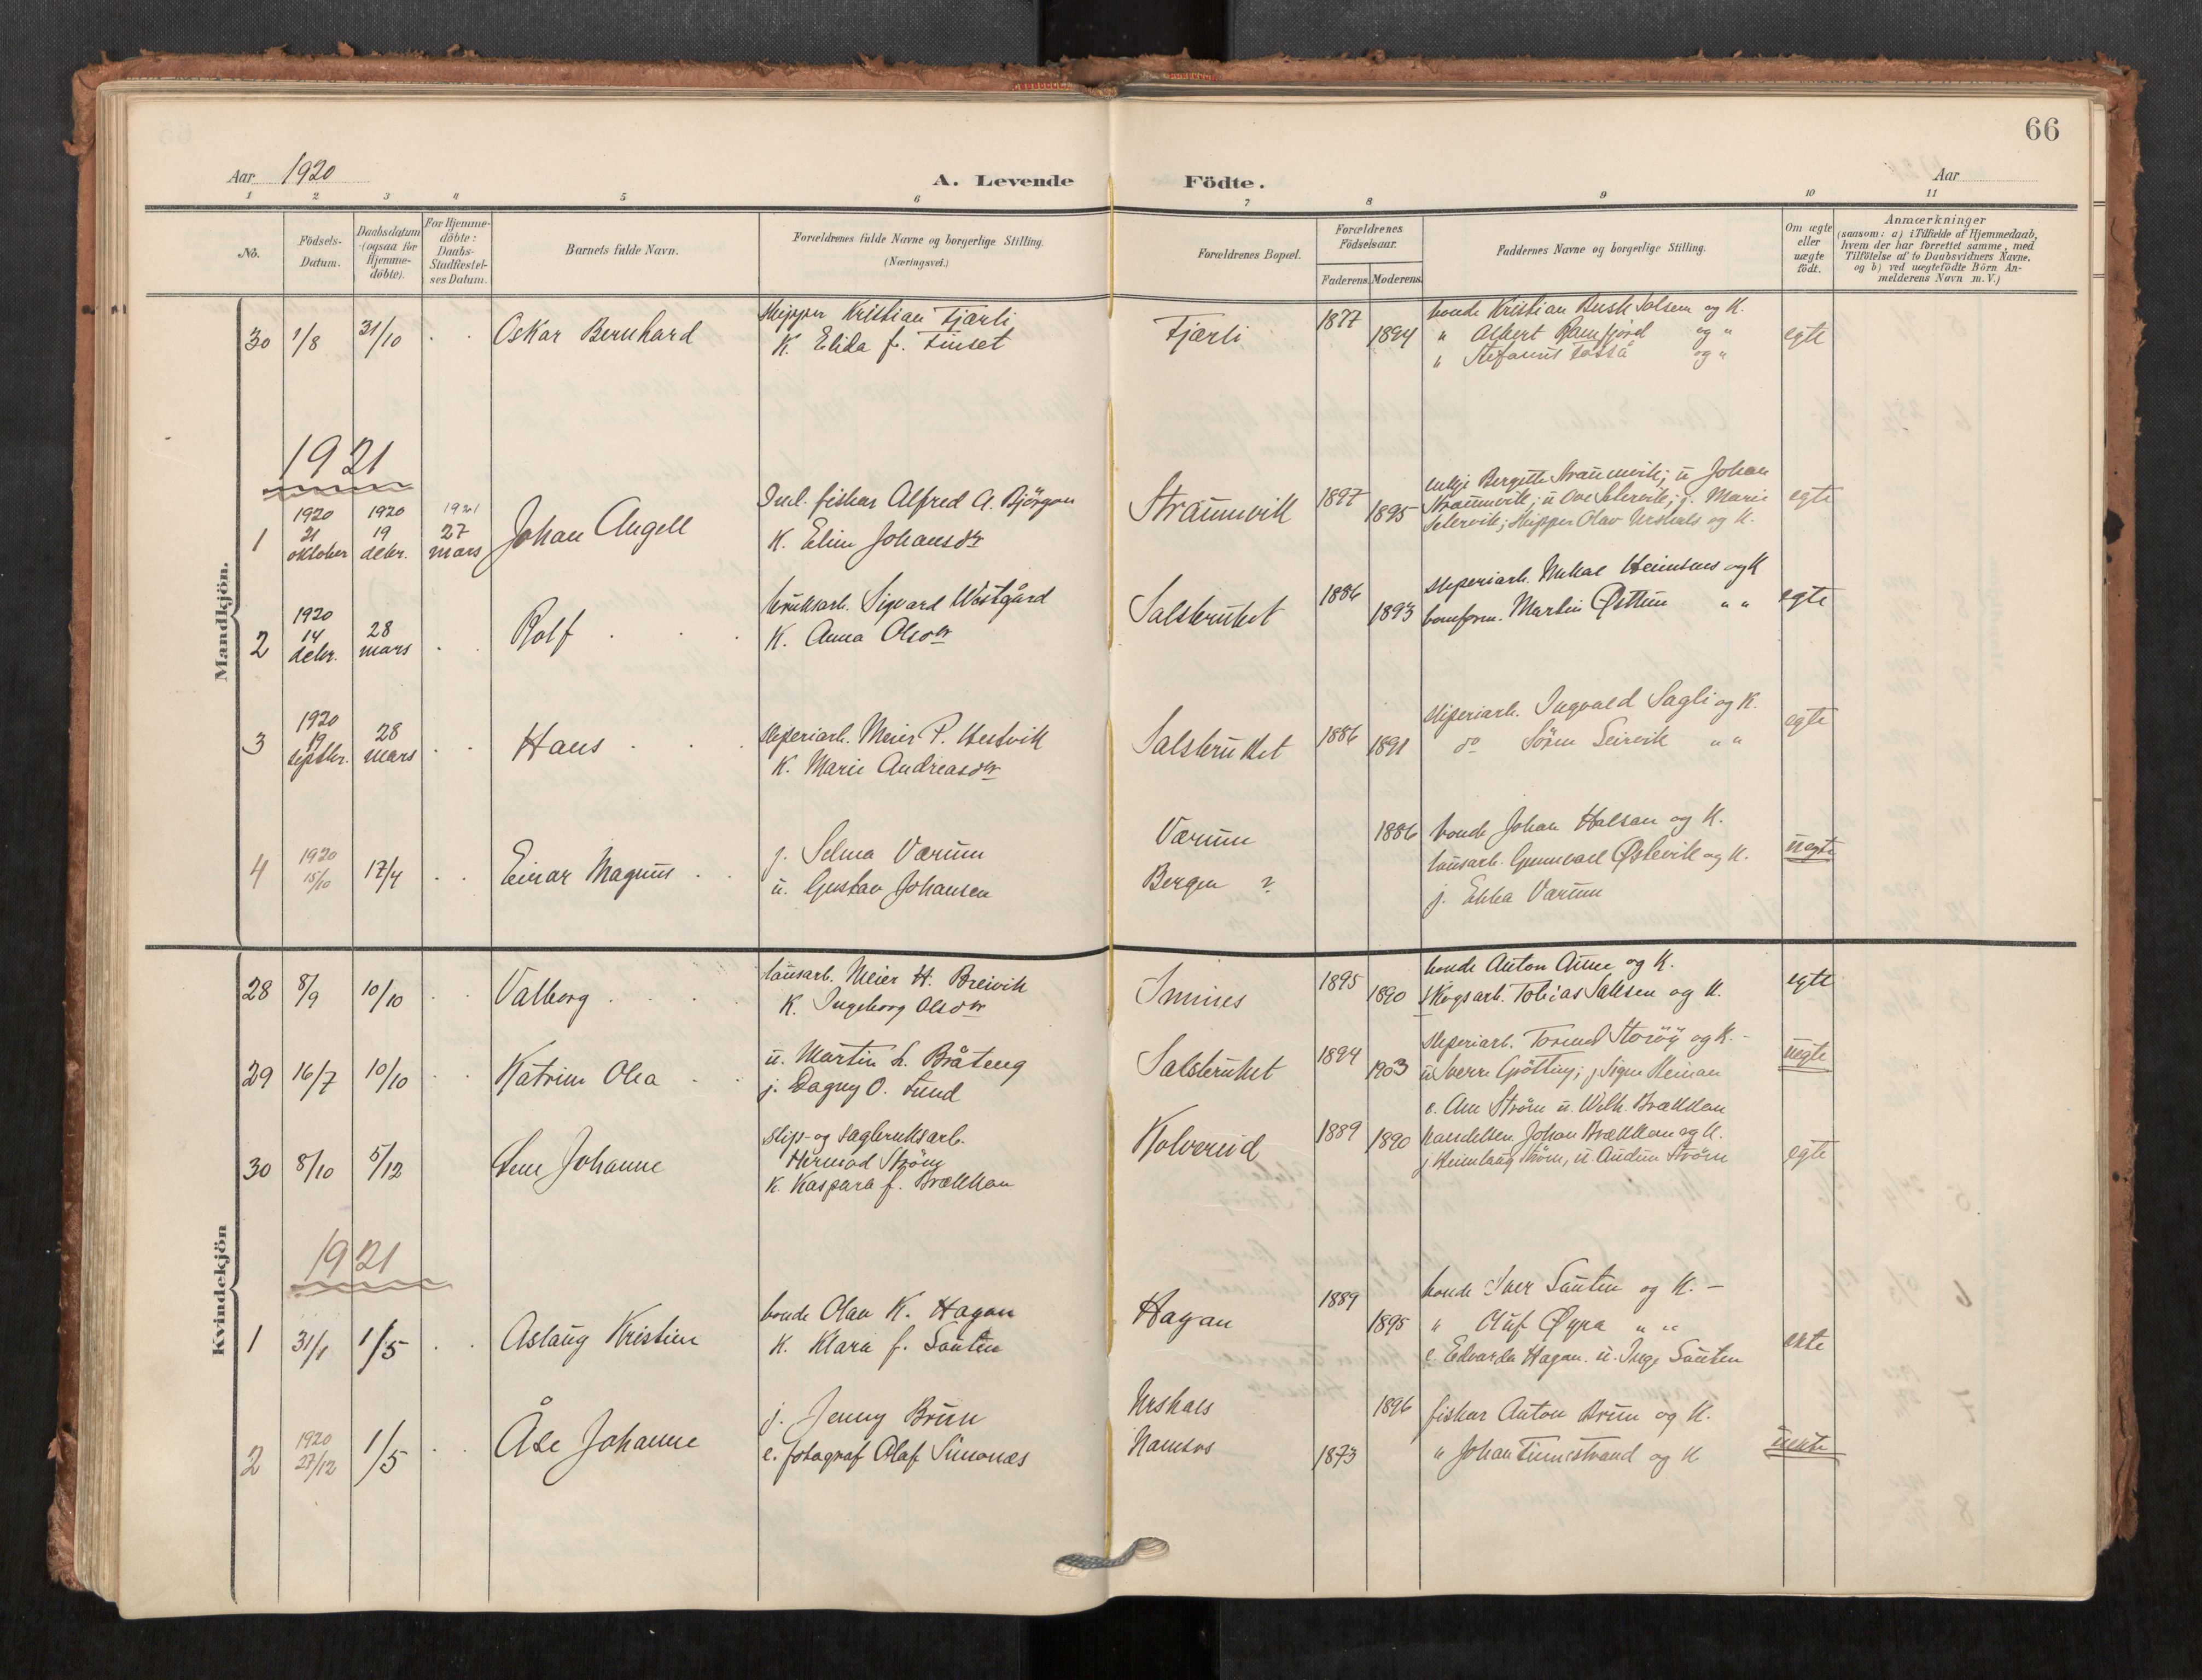 66
Aar 1920
A. Levende Födte.
Aar
1 2 3 4 5 6 7 8 9 10 11
No.
Födsels-
Datum.
Daabsdatum
(ogsaa for
Hjemme-
döbte).
For Hjemme-
döbte:
Daabs-
Stadfæstel-
ses Datum.
Barnets fulde Navn.
Forældrenes fulde Navne og borgerlige Stilling.
(Næringsvei.)
Forældrenes Bopæl.
Forældrenes
Födselsaar.
Faderens. Moderens.
Faddernes Navne og borgerlige Stilling.
Om ægte
eller
uægte
födt.
Anmærkninger
(saasom: a) i Tilfælde af Hjemmedaab,
hvem der har forrettet samme, med
Tilföielse af to Daabsvidners Navne.
og b) ved uægtefödte Börn An-
melderens Navn m. V.)
Mandkjön.
30 1/8 31/10 Oskar Bernhard
Skipper Kristian Fjærli
K. Elida f. Finset
Fjærli 1877 1894
bonde Kristian Salsen og K.
" Albert Ramfjord og "
" Stefanus og "
egte
1921
1
1920
21
oktober
1920
19
debr.
1921
27
mars
Johan Angell
Inl. fisker Alfred A. Bjørgan
K. Eline Johansdtr
Straumvik 1897 1895
enkje Bergitte Straumvik; u Johan
Straumvik; u Ove Selervik; j. Marie
Selervik; skipper Olav Urshals og K.
egte
2
1920
14
debr.
28
mars
Rolf
bruksarb. Sigvard Westgård
K. Anna Olsdtr
Salsbruket 1886 1893
sliperiarb. Mikal Heimsnes og K
bomform. Martin Østhun " "
egte
3
1920
19
septbr.
28
mars
Hans
sliperiarb. Meier P. Hestvik
K. Marie Andreasdtr
Salsbruket 1886 1891
sliperiarb. Ingvald Sagli og K.
do Sören Seirvik " "
egte
4
1920
15/10
17/4 Einar Magnus
j. Selma Værum
u. Gustav Johansen
Værum
Bergen ?
1886
bonde Johan Halsan og K.
lausarb. Gunvald Østevik og K.
j. Ebba Værum
uegte
Kvindekjön
28 8/9 10/10 Valborg
lausarb. Meier H. Breivik
K. Ingeborg Olsdtr
Smines 1895 1890
bonde Anton Aune og K.
skogsarb. Tobias Salsen og K.
egte
29 16/7 10/10 Katrine Olea
u. Martin L. Bråteng
j. Dagny O. Lund
Salsbruket 1894 1903
sliperiarb. Tormod Storöy og K. -
u Sverre Grötting; j Signe Heinan
uegte
30 8/10 5/12 Lene Johanne
slip- og sagbruksarb.
Hermod Ström
K. Kaspara f. Brækkan
Kolvereid 1889 1890
e. Ane Ström u. Wilh. Brækkan
handelsm. Johan Brækkan og K.
j Heimlaug Ström, u. Audun Ström
egte
1921
1 31/1 1/5 Aslaug Kristine
bonde Olav K. Hagan
K. Klara f. Sauten
Hagan 1889 1895
bonde Iver Sauten og K. -
" Oluf Øyra " "
e. Edvarda Hagan. u. Inge Sauten
ekte
2
1920
27/12
1/5 Åse Johanne
j. Jenny Brun
e. fotograf Olaf Simonæs
Urshals
Namsos
1873 1896
fisker Anton Brun og K.
" Johan Finnestrand og K
uekte